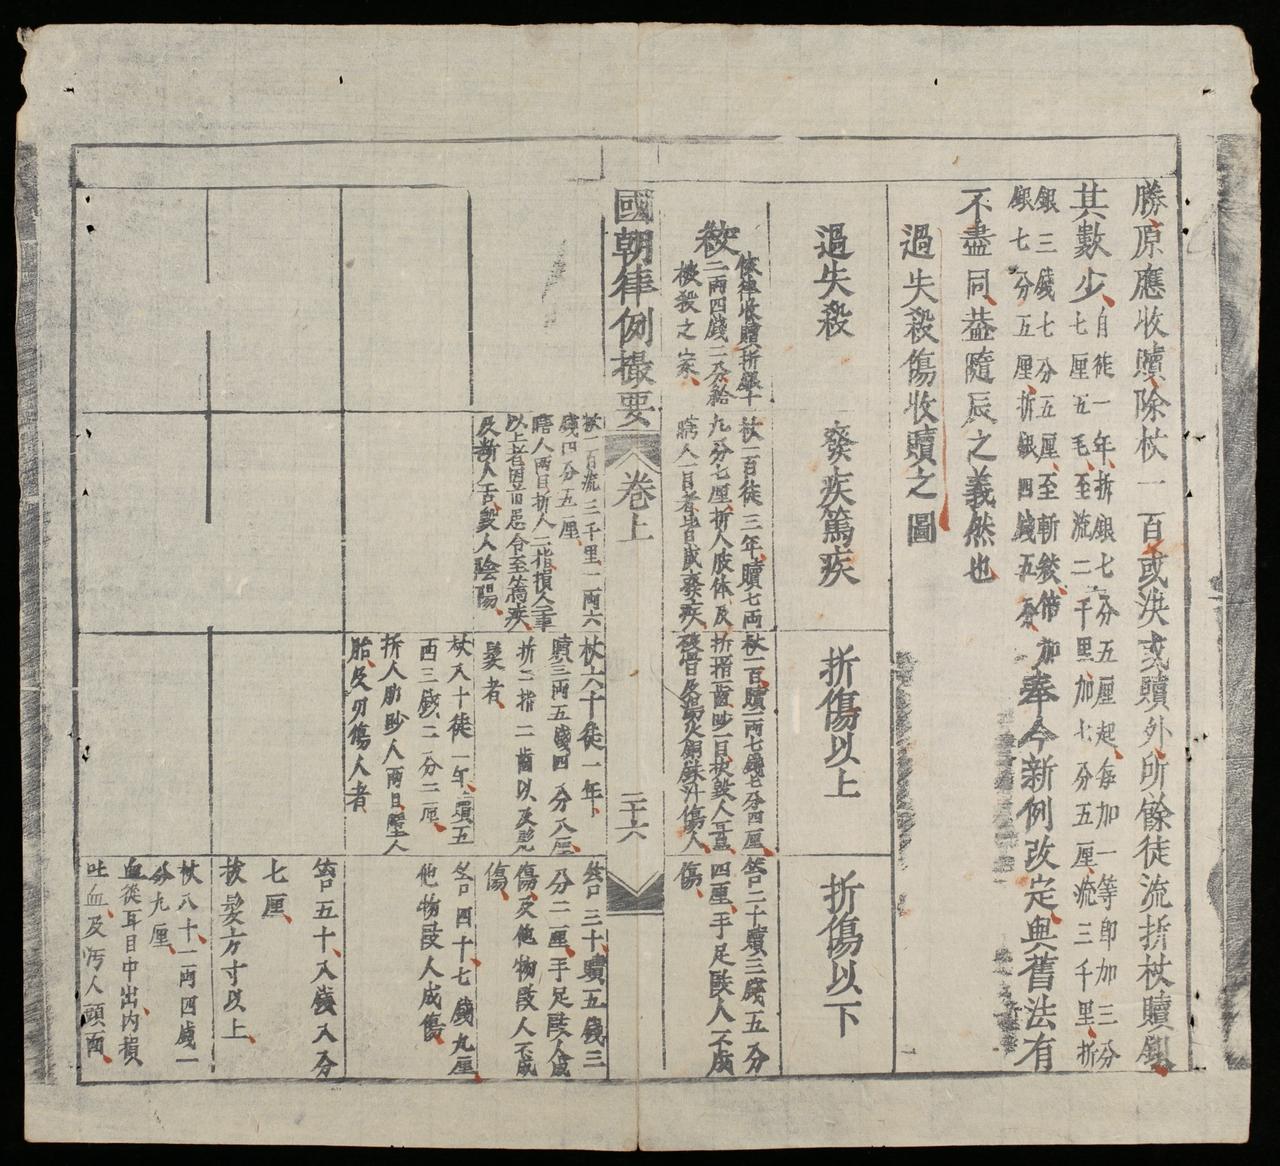 勝原應收贖除杖一百或決或贖外所餘徒流折杖贖銀
其數少自徒一年折銀七分五厘起每加一等即加三分
七厘五毛至流二千里加七分五厘流三千里折
銀三錢七分五厘至斬絞倍加
銀七分五厘折銀四錢五分
奉今新例改定與舊法有
不盡同葢隨辰之義然也
過失殺傷收贖之圖
過失殺
癈疾篤疾
折傷以上
折傷以下
絞
依律收贖折銀十
二兩四錢二分給
被殺之家
杖一百徒三年贖七兩
九分七厘折人肢体及
瞎人一目者皆成癈疾
杖一百贖一兩七錢七分四厘
折指一齒眇一目抉毀人耳鼻
破骨及湯火銅鉄汁傷人
笞二十贖三錢五分
四厘手足毆人不成
傷
國朝律例撮要
卷上
三十六
杖一百流三千里一兩六
錢四分五厘
瞎人兩目折人二指損人二事
以上者因旧患令至篤疾
及斷人舌毀人陰陽
杖六十徒一年
贖三兩五錢四分八厘
折二指二齒以及髡
髮者
杖八十徒二年贖五
兩三錢二分二厘
折人肋眇人兩目墮人
胎及刃傷人者
笞三十贖五錢三
分二厘手足毆人成
傷及他物毆人不成
傷
笞四十七錢九厘
他物毆人成傷
笞五十八錢八分
七厘
拔髮方寸以上
杖八十一兩四錢一
分九厘
血從耳目中出內損
吐血及汚人頭面